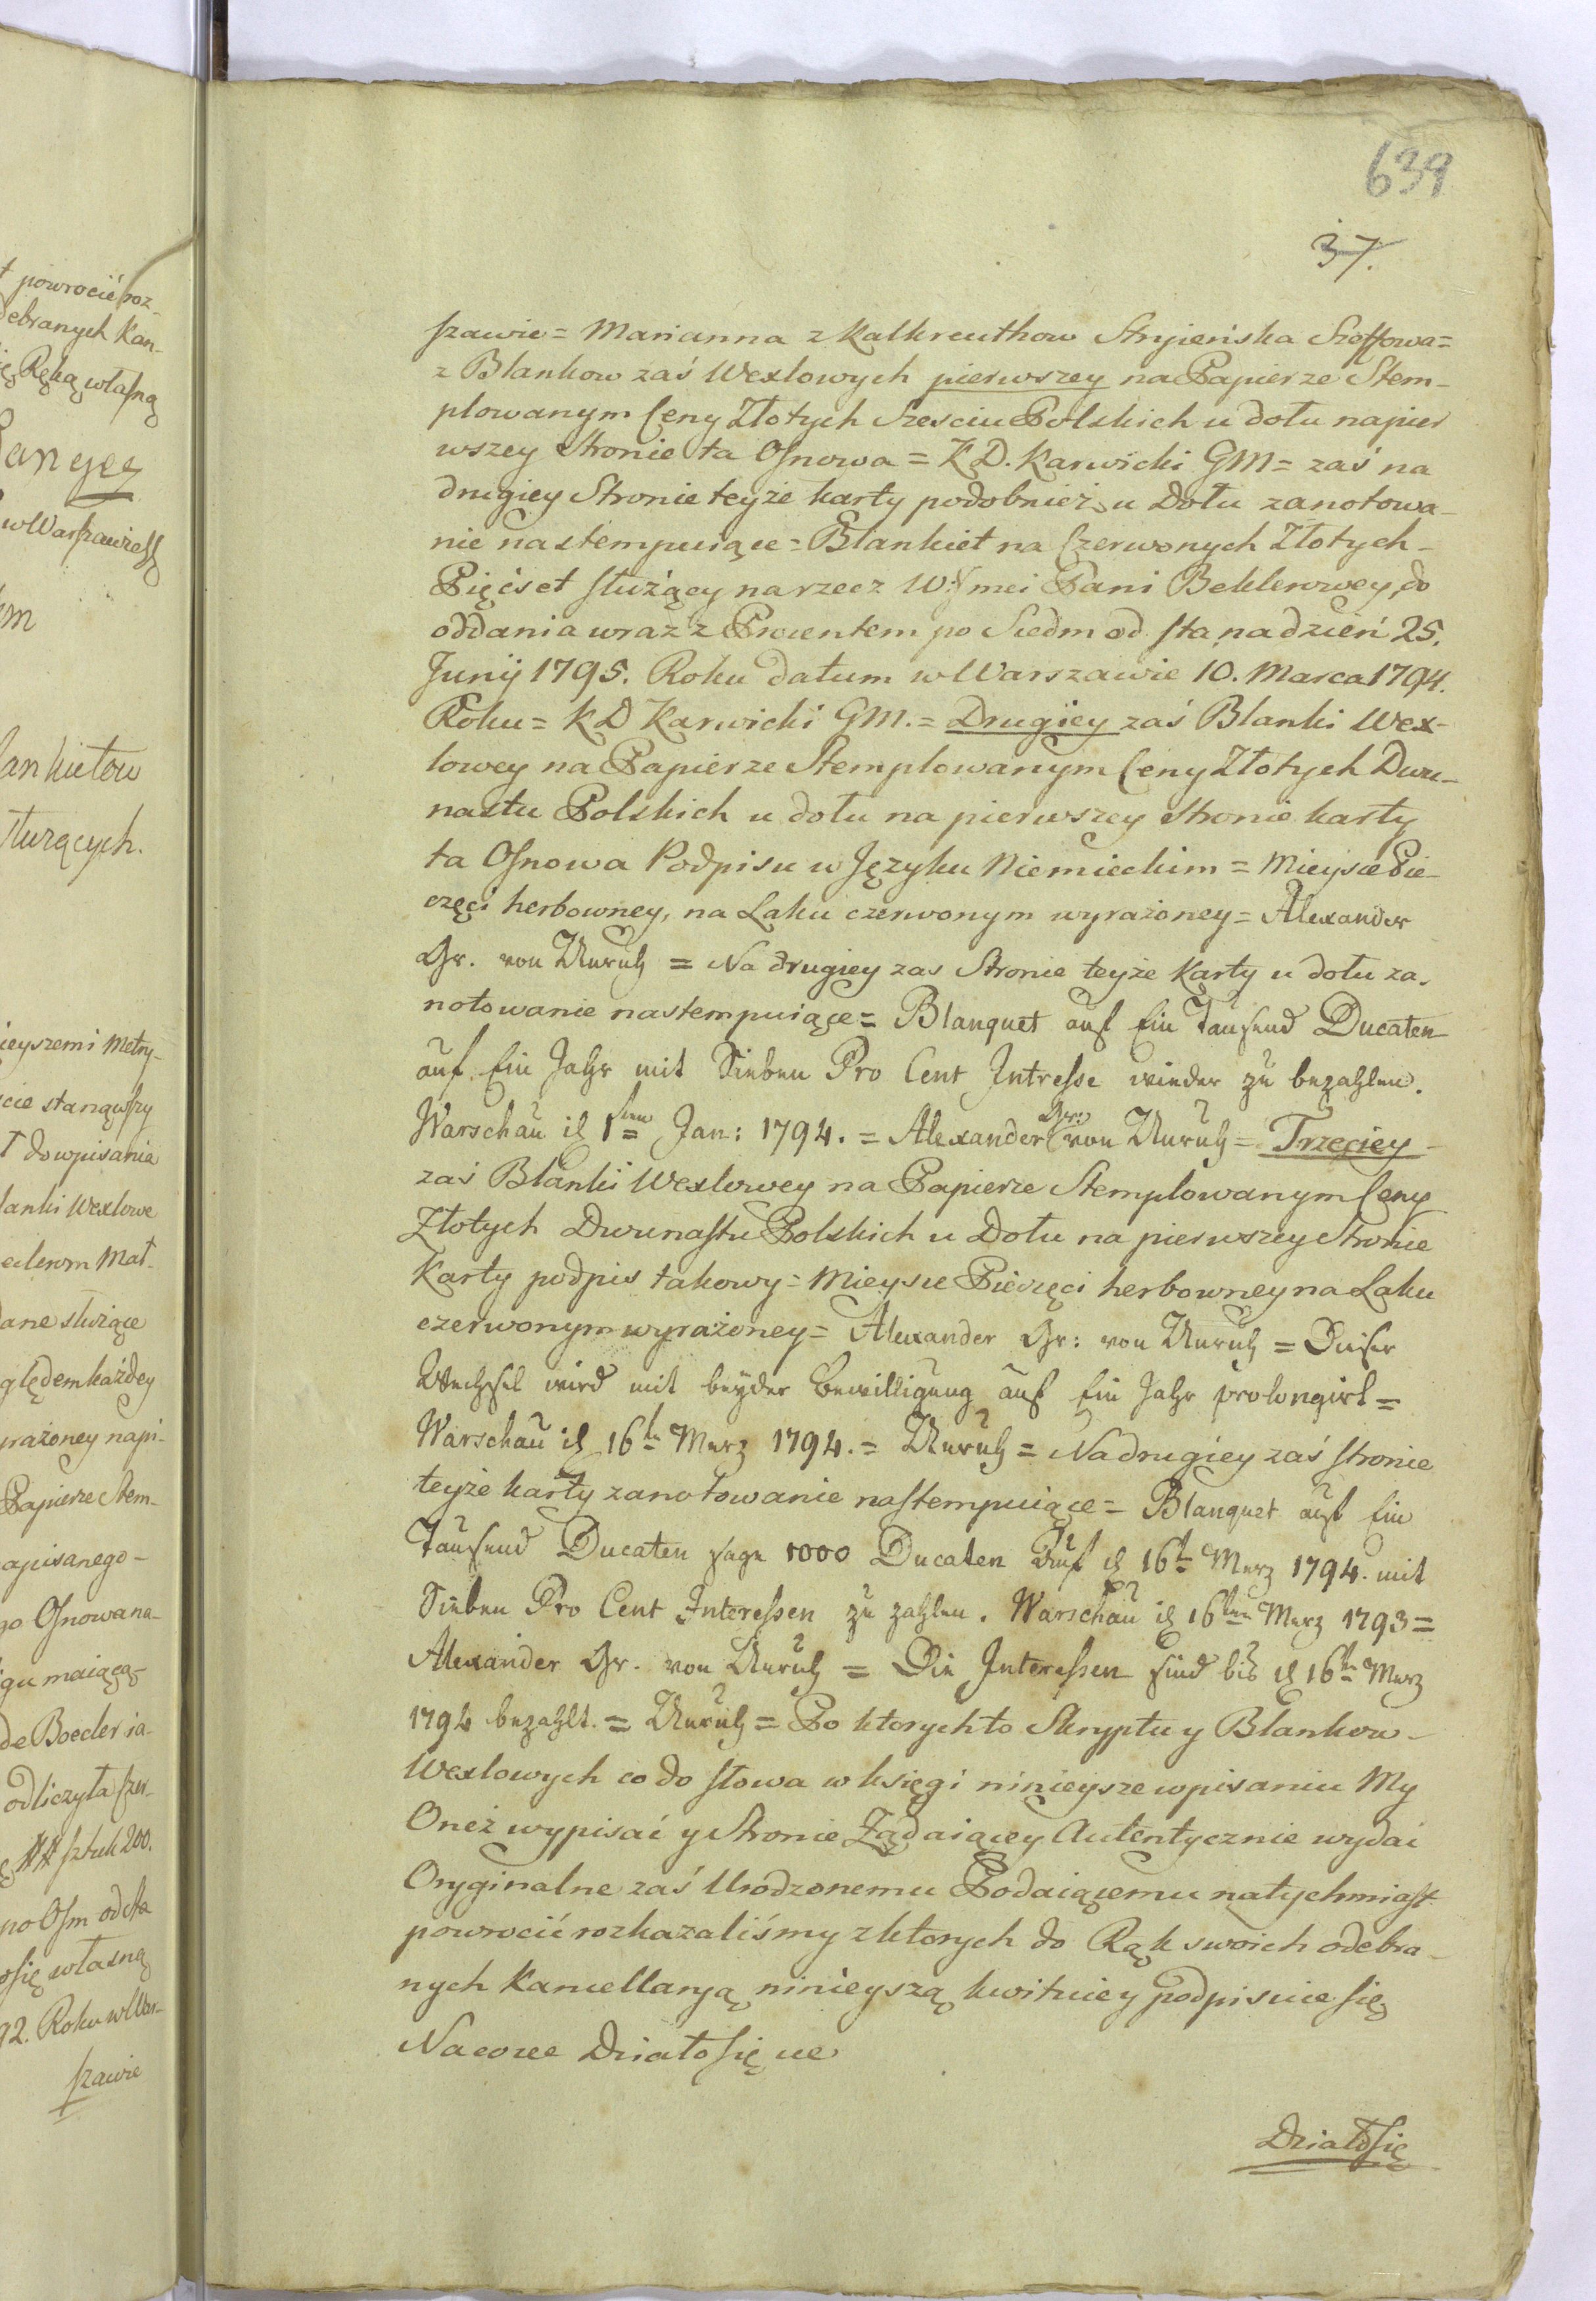 639
37.
szawie = Marianna z Kalkreuthow Stryieńska Szeffowa =
z Blankow zaś Wexlowych pierwszey na Papierze Stem-
plowanym Ceny Złotych Szesciu Polskich u dołu napier
wszey stronie ta Osnowa = K D. Karwicki GM = zaś na
drugiey Stronie teyże karty podobnież u Dołu zanotowa-
nie nastempuiące = Blankiet na Czerwonych Złotych -
Pięćset służący na rzecz W: J mci Pani Beklerowey, do
oddania wraz z Procentem po Siedm od sta, na dzień 25.
Junij 1795. Roku datum w Warszawie 10. Marca 1794.
Roku = K D Karwicki GM. = Drugiey zaś Blanki Wex-
lowey na Papierze Stemplowanym Ceny Złotych Dwu-
nastu Polskich u dołu na pierwszey stronie karty
ta Osnowa Podpisu w Języku Niemieckim = Mieysce Pie-
częci herbowney, na Laku czerwonym wyrażoney = Alexander
Gr. von Unruh = Na drugiey zas Stronie teyże Karty u dołu za-
notowanie nastempuiące = Blanquet auf Ein Tausend Ducaten
auf Ein Jahr mit Sieben Pro Cent Intresse wieder zu bezahlen.
Warschau 1 Jan: 1794. = Alexander Gr: von Unruh = Trzeciey -
zaś Blanki Wexlowey na Papierze Stemplowanym Ceny
Złotych Dwunastu Polskich u Dołu na pierwszey Stronie
Karty podpis takowy = Mieysce Pieczęci herbowney na Laku
czerwonym wyrażoney = Alexander Gr: von Unruh = Dieser
Wechsel wird mit beyder Bewilligung auf Ein Jahr prolongirt =
Warschau 16t Merz 1794. = Unruh = Na drugiey zaś stronie
teyże karty zanotowanie nastempuiące = Blanquet auf Ein
Tausend Ducaten sage 1000 Ducaten Auf 16t Merz 1794. mit
Sieben Pro Cent Interessen zu zahlen. Warschau 16ten Merz 1793 =
Alexander Gr. von Unruh = Die Interessen sind bis 16t Merz
1794 bezahlt. = Unruh = Po ktorych to Skryptu y Blankow -
Wexlowych co do słowa w księgi ninieysze wpisaniu My
Oneż wypisać y Stronie Żądaiącey Autentycznie wydać
Oryginalne zaś Urodzonemu Podaiącemu natychmiast
powrocić rozkazaliśmy z ktorych do Rąk swoich odebra-
nych Kancellaryą ninieyszą kwituie y podpisuie się
Na co ree Działo się ue
Działo się
ł powrocić roz-
debranych Kan-
ię Ręką własną
w Warszawie
lankietow
służących.
ieyszemi Metry-
cie stanąwszy
ł do wpisania
lanki Wexlowe
eclerom Mał-
dane służące
ględem każdey
yrażoney napi-
Papierze Stem-
apisanego -
go Osnowana-
gu maiącą -
de Boecler ia-
odliczyła szer-
sztuk 200.
po Osm od sta
się własną
92. Roku w War-
szawie